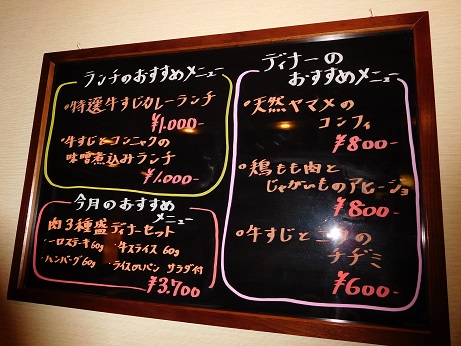 ランチのおすすめメニュー
・特選牛すじカレーランチ
¥1.000-
・牛すじとコンニャクの
味噌煮込みランチ
¥1.000-
今月のおすすめ
メニュー
肉3種盛ディナーセット
・一口ステーキ60g ・牛スライス 60g
・ハンバーグ60g ・ライスorパン サラダ付
¥3.700
ディナーの
おすすめメニュー
・天然ヤマメの
コンフィ
¥800-
・鶏もも肉と
じゃがいものアヒージョ
¥800-
・牛すじとニラの
チヂミ
¥600-